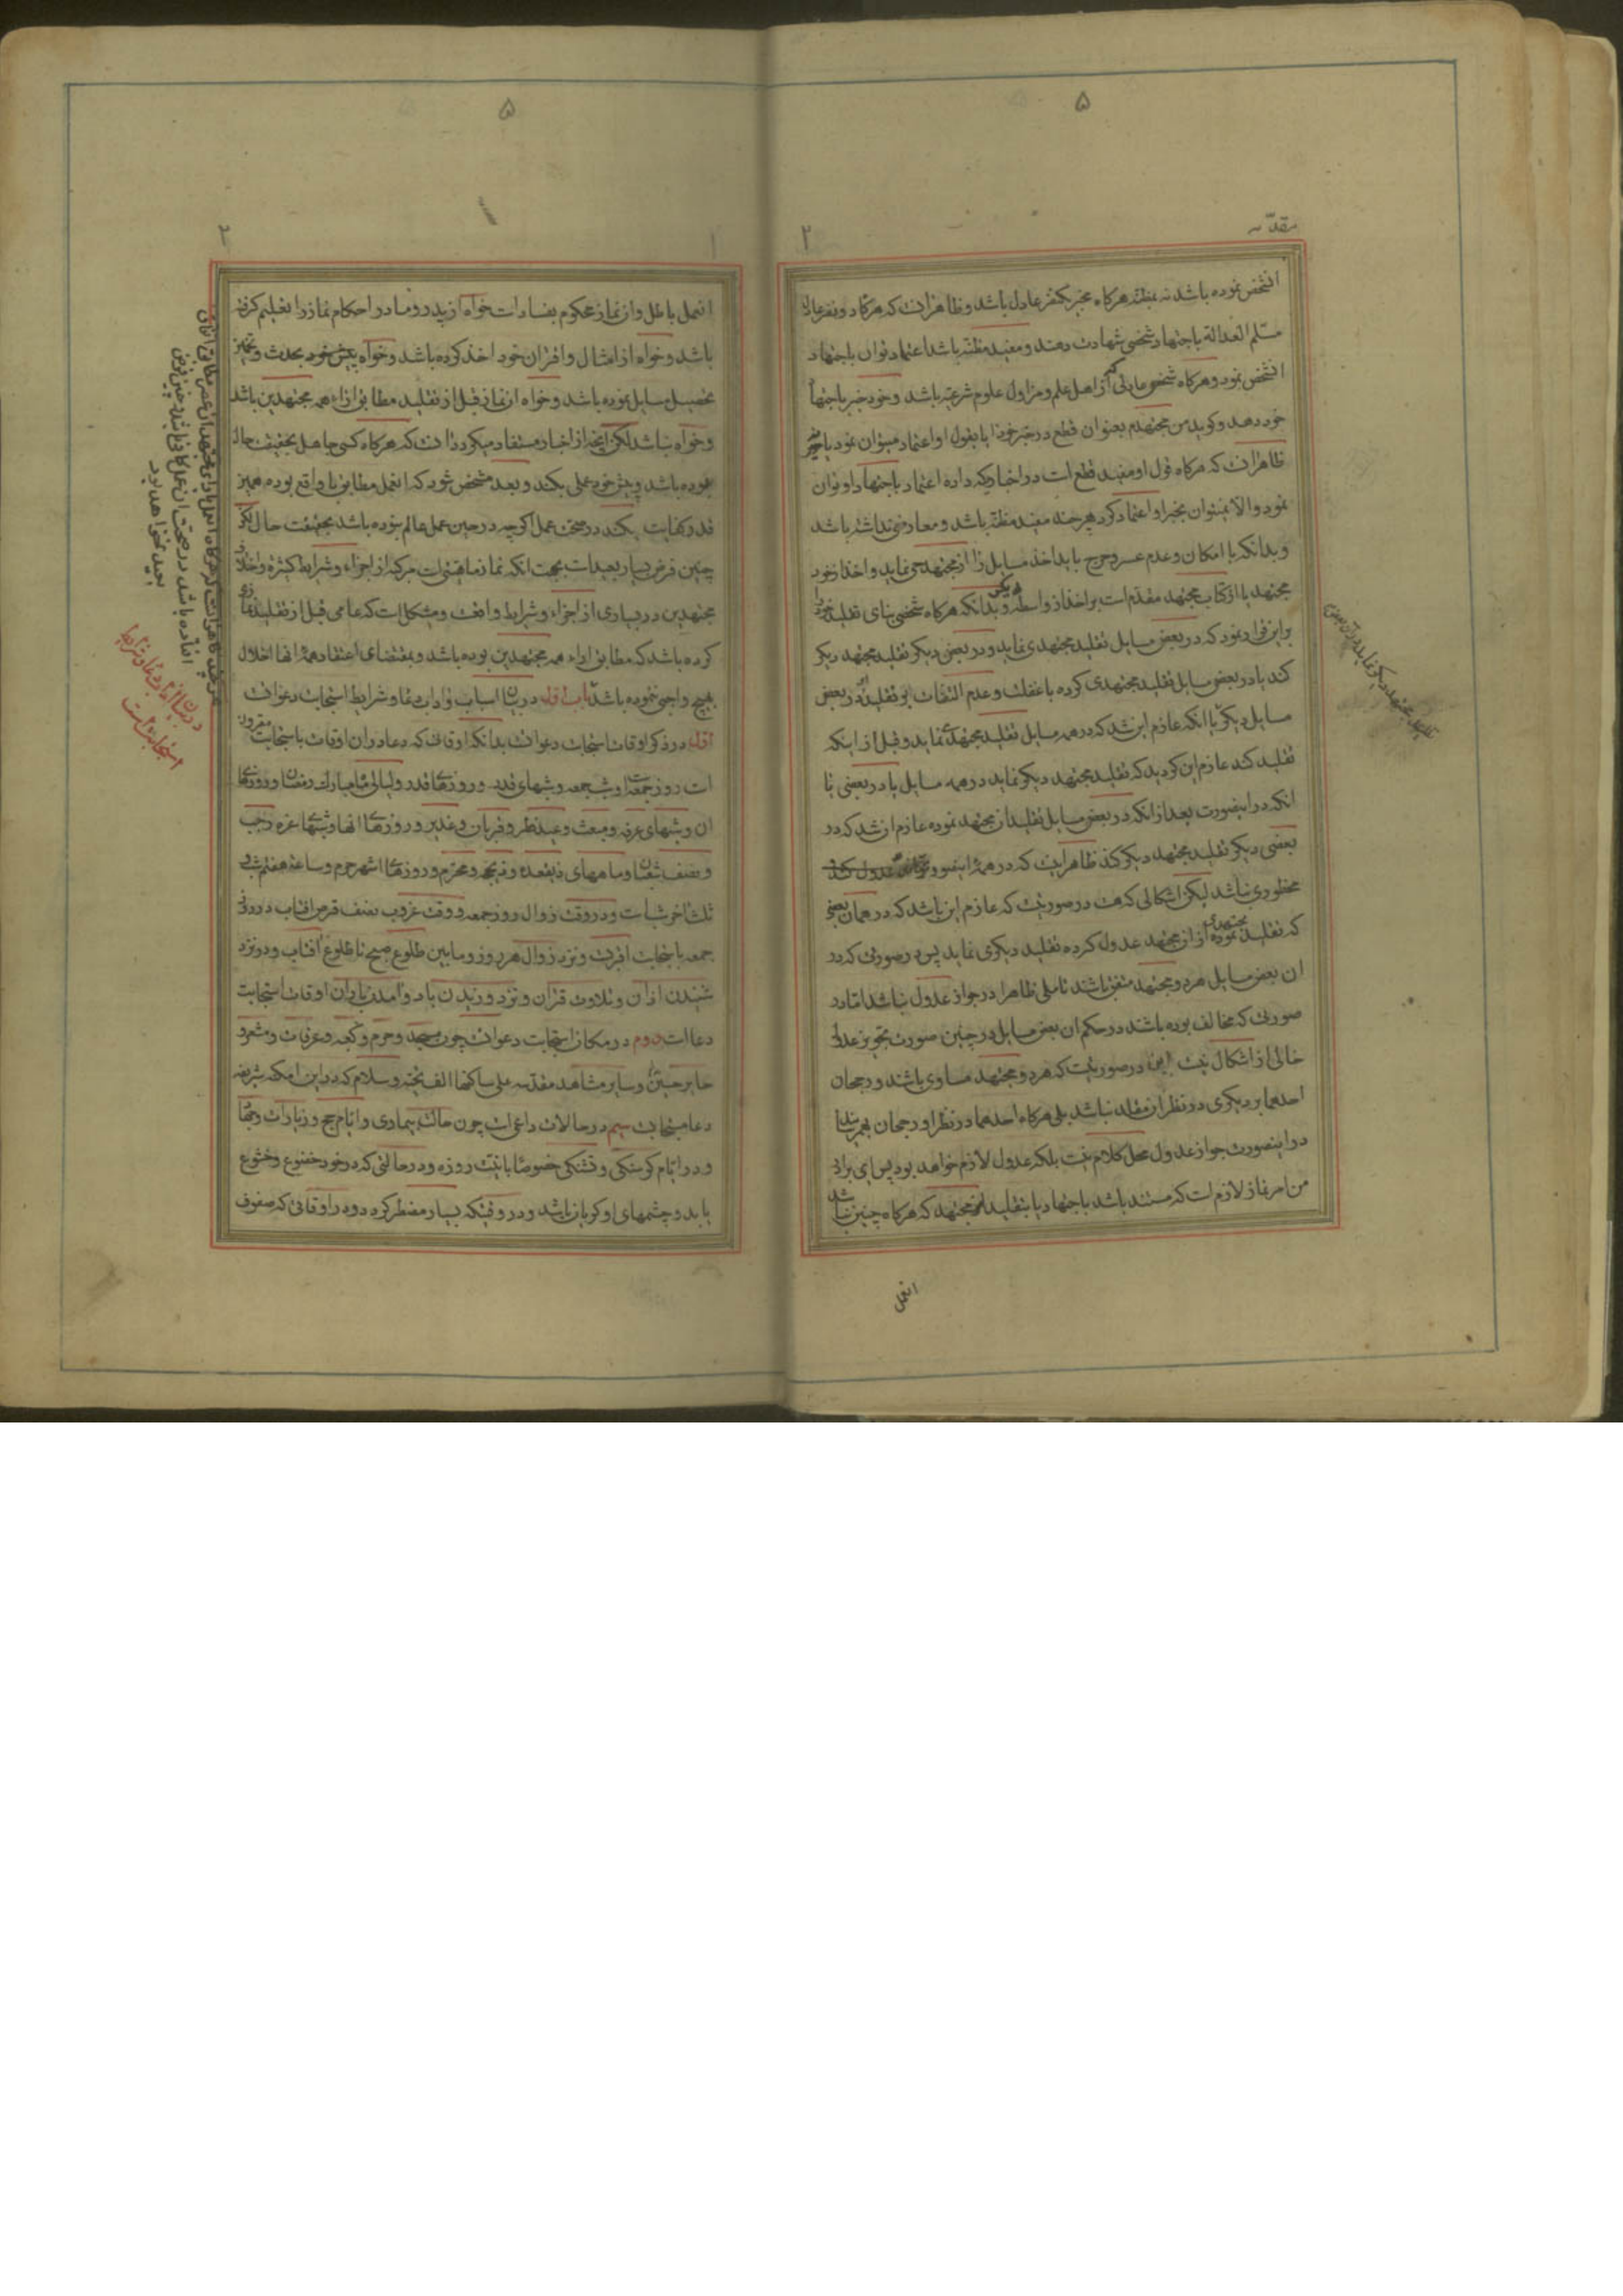 ۵
۲
مقدّمه
انشخص نموده باشد نه بمظنّه هرگاه مخبر یکنفر عادل باشد و ظاهر انست که هرگاه دو نفر عادل
مسلّم العداله باجتهاد شخصی شهادت دهند و مفید مظنّه باشد اعتماد توان باجتهاد
انشخص نمود و هرگاه شخص عادلی که از اهل علم و مزاول علوم شرعیّه باشد و خود خبر باجتهاد
خود دهد و گوید من مجتهدم بعنوان قطع در خبر خود ایا بقول او اعتماد میتوان نمود یا خیر
ظاهر انست که هرگاه قول او مفید قطع است در اخباریکه داده اعتماد باجتهاد او توان
نمود و الا نمیتوان بخبر او اعتماد کرد هر چند مفید مظنّه باشد و معارضی نداشته باشد
و بدانکه با امکان و عدم عسر و حرج باید اخذ مسایل را از مجتهد حی نماید و اخذ از خود
مجتهد یا از کتاب مجتهد مقدّم است بر اخذ از واسطه و بدانکه هرگاه شخصی بنای تقلید خود را
براین قرار نمود که در بعض مسایل تقلید مجتهدی نماید و در بعض دیگر تقلید مجتهد دیگر
کند یا در بعض مسایل تقلید مجتهدی کرده با غفلت و عدم التفات بر تقلید در بعض
مسایل دیگر یا انکه عازم این شد که در همه مسایل تقلید مجتهدی نماید و قبل از اینکه
تقلید کند عازم این گردید که تقلید مجتهد دیگر نماید در همه مسایل یا در بعضی یا
انکه در اینصورت بعد از انکه در بعض مسایل تقلید ان مجتهد نموده عازم ان شد که در
بعضی دیگر تقلید مجتهد دیگر کند ظاهر اینست که در همهٔ اینصور عدول کند
محظوری نباشد لیکن اشکالی که هست در صورتیست که عازم این باشد که در همان بعض
که تقلید مجتهدی نموده از ان مجتهد عدول کرده تقلید دیگری نماید پس در صورتی که در
ان بعض مسایل هر دو مجتهد متفق باشند تاملی ظاهرا در جواز عدول نباشد اما در
صورتی که مخالف بوده باشند در حکم ان بعض مسایل در چنین صورت تجویز عدول
خالی از اشکال نیست این در صورتیست که هر دو مجتهد مساوی باشند و رجحان
احدهما بر دیگری در نظر ان مقلد نباشد بلی هرگاه احدهما در نظر او رجحان بهم رساند
در اینصورت جواز عدول محل کلام نیست بلکه عدول لازم خواهد بود پس ای برادر
من امر نماز لازم است که مستند باشد باجتهاد یا بتقلید از مجتهد که هرگاه چنین نباشد
انعمل
۵
۲
انعمل باطل و ان نماز محکوم بفساد است خواه از پدر و مادر احکام نماز را تعلیم گرفته
باشد و خواه از امثال و اقران خود اخذ کرده باشد و خواه پیش خود بحدث و تخمین
تحصیل مسایل نموده باشد و خواه ان نماز قبل از تقلید مطابق اراء همه مجتهدین باشد
و خواه نباشد لکن انچه از اخبار مستفاد میگردد انست که هرگاه کسی جاهل بحقیقت حال
بوده باشد و پیش خود عملی بکند و بعد مشخص شود که انعمل مطابق با واقع بوده همین
قدر کفایت بکند در صحت عمل اگرچه در حین عمل عالم نبوده باشد بحقیقت حال لکن
چنین فرض بسیار بعید است بجهت انکه نماز ماهیتی است مرکبه از اجزاء و شرایط کثیره و اختلاف
مجتهدین در بسیاری از اجزاء و شرایط واقعست و مشکل است که عامی قبل از تقلید نمازی
کرده باشد که مطابق اراء همه مجتهدین بوده باشد و بمقتضای اعتقاد همهٔ انها اخلال
بهیچ واجبی ننموده باشد باب اوّل در بیان اسباب و اداب دعا و شرایط استجابت دعوات
اوّل در ذکر اوقات استجابت دعوات بدانکه اوقاتی که دعا در ان اوقات باستجابت مقرون
است روز جمعه و شب جمعه و شبهای قدر و روزهای قدر و لیالی ماه مبارک رمضان و روزهای
ان و شبهای عرفه و مبعث و عید فطر و قربان و غدیر و روزهای انها و شبهای غره رجب
و نصف شعبان و ماههای ذیقعده و ذیحجه و محرّم و روزهای اشهر حرم و ساعت هفتم شب و
ثلث اخر شب است و در وقت زوال روز جمعه و وقت غروب نصف قرص افتاب در روز
جمعه باستجابت اقربست و نزد زوال هر روز و مابین طلوع صبح تا طلوع افتاب و در نزد
شنیدن اذان و تلاوت قران و نزد وزیدن باد و امدن باران اوقات استجابت
دعا است دوم در مکان استجابت دعوات چون مسجد و حرم و کعبه و عرفات و مشعر و
حایر حسین و سایر مشاهد مقدسه علی ساکنها الف تحیّه و سلام که در این امکنه شریفه
دعا مستجابست سیم در حالات داعی است چون حالت بیماری و ایام حج و زیارات و جهاد
و در ایام گرسنگی و تشنگی خصوصا با نیت روزه و در حالتی که در خود خضوع و خشوع
یابد و چشمهای او گریان باشد و در وقتیکه بسیار مضطر گردد و در اوقاتی که صفوف
افتاده باشد در صحت ان عمل کافی باشد چنین فرض
بعید نخواهد بود
در بیان اداب دعا و شرایط
استجابت است